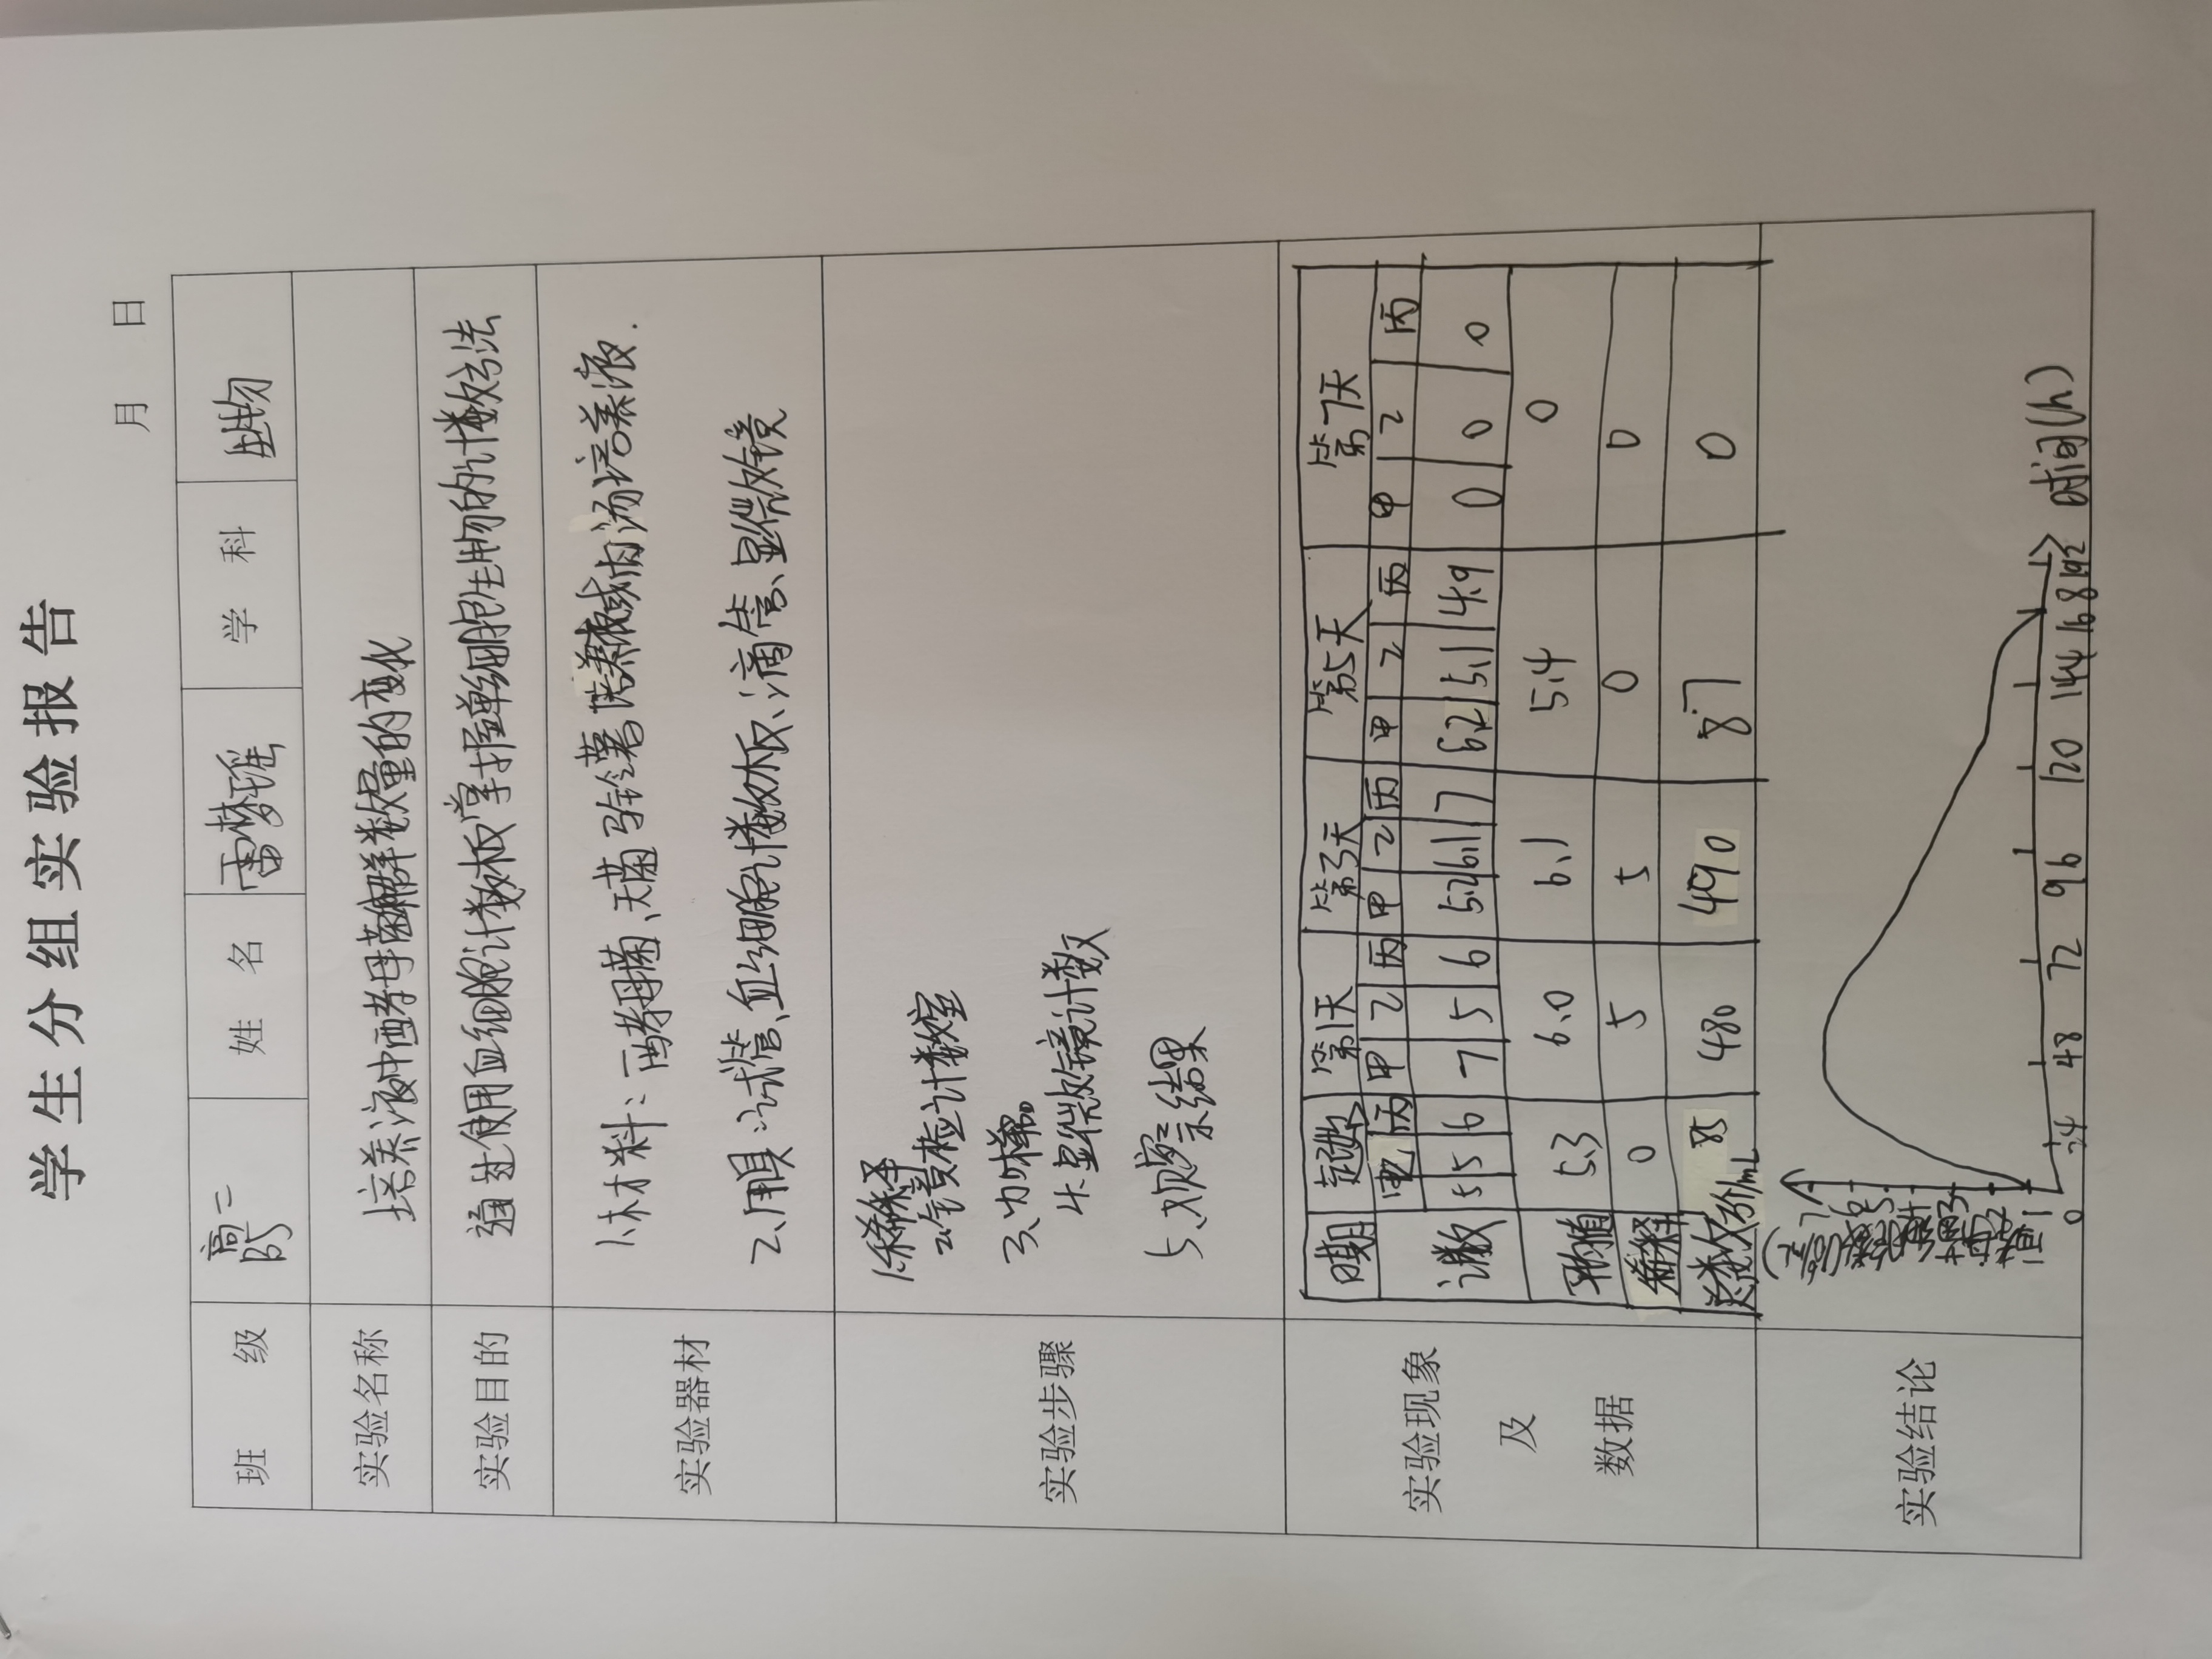 学生分组实验报告
月 日
班 级 高二 姓 名 雷梦瑶 学 科 生物
实验名称 培养液中酵母菌种群数量的变化
实验目的 通过使用血细胞计数板掌握单细胞生物的计数方法
实验器材 1.材料:酵母菌、无菌马铃薯培养液或肉汤培养液.
2.用具:试管、血细胞计数板、滴管、显微镜
实验步骤 1.稀释
2.镜检计数室
3、加样
4.显微镜计数
5、观察结果
实验现象及数据
日期 起始 第1天 第3天 第5天 第7天
丙 甲 乙 丙 甲 乙 丙 甲 乙 丙 甲 乙 丙
计数 5 5 6 7 5 6 5.2 6.1 7 6.2 5.1 4.9 0 0 0
平均值 5.3 6.0 6.1 5.4 0
稀释 0 5 5 0 0
总数 万个/mL 85 480 490 87 0
实验结论
7
6
5
4
3
2
1
0 24 48 72 96 120 144 168 192 时间(h)